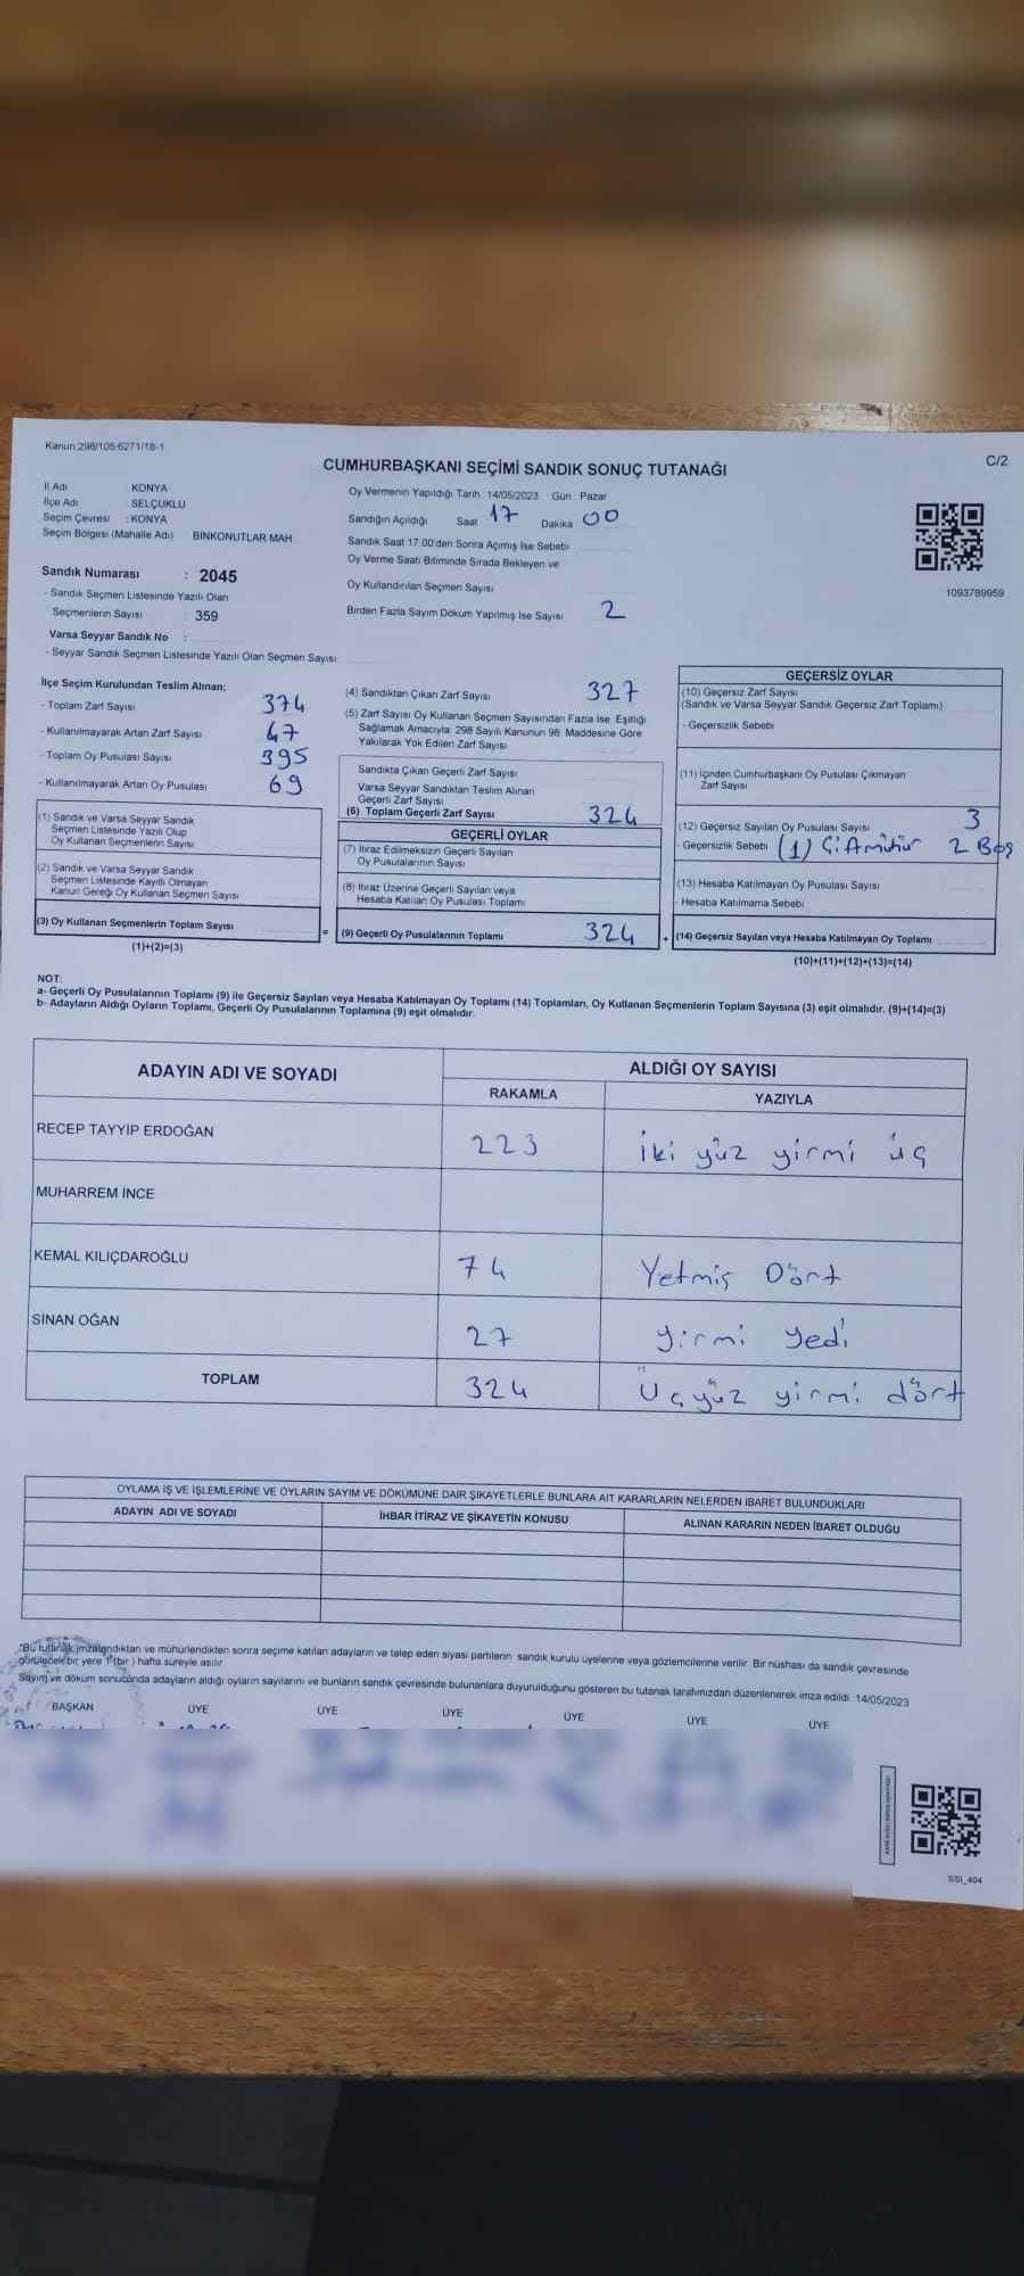 Kanun:298/105-6271/18-1
C/2
CUMHURBAŞKANI SEÇİMİ SANDIK SONUÇ TUTANAĞI
İl Adı KONYA
İlçe Adı SELÇUKLU
Seçim Çevresi : KONYA
Seçim Bölgesi (Mahalle Adı) BİNKONUTLAR MAH.
Sandık Numarası : 2045
- Sandık Seçmen Listesinde Yazılı Olan
Seçmenlerin Sayısı : 359
Varsa Seyyar Sandık No :
- Seyyar Sandık Seçmen Listesinde Yazılı Olan Seçmen Sayısı
Oy Vermenin Yapıldığı Tarih: 14/05/2023 Gün: Pazar
Sandığın Açıldığı Saat 17 Dakika 00
Sandık Saat 17:00'den Sonra Açımış İse Sebebi
Oy Verme Saati Bitiminde Sırada Bekleyen ve
Oy Kullandırılan Seçmen Sayısı
Birden Fazla Sayım Döküm Yapılmış İse Sayısı 2
1093789959
İlçe Seçim Kurulundan Teslim Alınan;
- Toplam Zarf Sayısı 374
- Kullanılmayarak Artan Zarf Sayısı 47
- Toplam Oy Pusulası Sayısı 395
- Kullanılmayarak Artan Oy Pusulası 69
(1) Sandık ve Varsa Seyyar Sandık
Seçmen Listesinde Yazılı Olup
Oy Kullanan Seçmenlerin Sayısı
(2) Sandık ve Varsa Seyyar Sandık
Seçmen Listesinde Kayıtlı Olmayan
Kanun Gereği Oy Kullanan Seçmen Sayısı
(3) Oy Kullanan Seçmenlerin Toplam Sayısı
(1)+(2)=(3)
(4) Sandıktan Çıkan Zarf Sayısı 327
(5) Zarf Sayısı Oy Kullanan Seçmen Sayısından Fazla İse, Eşitliği
Sağlamak Amacıyla, 298 Sayılı Kanunun 98. Maddesine Göre
Yakılarak Yok Edilen Zarf Sayısı
Sandıkta Çıkan Geçerli Zarf Sayısı
Varsa Seyyar Sandıktan Teslim Alınan
Geçerli Zarf Sayısı
(6) Toplam Geçerli Zarf Sayısı 324
GEÇERLİ OYLAR
(7) İtiraz Edilmeksizin Geçerli Sayılan
Oy Pusulalarının Sayısı
(8) İtiraz Üzerine Geçerli Sayılan veya
Hesaba Katılan Oy Pusulası Toplamı
= (9) Geçerli Oy Pusulalarının Toplamı 324
GEÇERSİZ OYLAR
(10) Geçersiz Zarf Sayısı
(Sandık ve Varsa Seyyar Sandık Geçersiz Zarf Toplamı)
- Geçersizlik Sebebi
(11) İçinden Cumhurbaşkanı Oy Pusulası Çıkmayan
Zarf Sayısı
(12) Geçersiz Sayılan Oy Pusulası Sayısı 3
Geçersizlik Sebebi (1) 2 Boş
(13) Hesaba Katılmayan Oy Pusulası Sayısı
- Hesaba Katılmama Sebebi
+ (14) Geçersiz Sayılan veya Hesaba Katılmayan Oy Toplamı
(10)+(11)+(12)+(13)=(14)
NOT:
a- Geçerli Oy Pusulalarının Toplamı (9) ile Geçersiz Sayılan veya Hesaba Katılmayan Oy Toplamı (14) Toplamları, Oy Kullanan Seçmenlerin Toplam Sayısına (3) eşit olmalıdır. (9)+(14)=(3)
b- Adayların Aldığı Oyların Toplamı, Geçerli Oy Pusulalarının Toplamına (9) eşit olmalıdır.
ADAYIN ADI VE SOYADI
ALDIĞI OY SAYISI
RAKAMLA YAZIYLA
RECEP TAYYİP ERDOĞAN 223 İki yüz yirmi üç
MUHARREM İNCE
KEMAL KILIÇDAROĞLU 74 Yetmiş Dört
SİNAN OĞAN 27 yirmi yedi
TOPLAM 324 Üçyüz yirmi dört
OYLAMA İŞ VE İŞLEMLERİNE VE OYLARIN SAYIM VE DÖKÜMÜNE DAİR ŞİKAYETLERLE BUNLARA AİT KARARLARIN NELERDEN İBARET BULUNDUKLARI
ADAYIN ADI VE SOYADI İHBAR İTİRAZ VE ŞİKAYETİN KONUSU ALINAN KARARIN NEDEN İBARET OLDUĞU
*Bu tutanak imzalandıktan ve mühürlendikten sonra seçime katılan adayların ve talep eden siyasi partilerin sandık kurulu üyelerine veya gözlemcilerine verilir. Bir nüshası da sandık çevresinde
görülecek bir yere 1 (bir) hafta süreyle asılır.
Sayım ve döküm sonucunda adayların aldığı oyların sayılarını ve bunların sandık çevresinde bulunanlara duyurulduğunu gösteren bu tutanak tarafımızdan düzenlenerek imza edildi. 14/05/2023
BAŞKAN ÜYE ÜYE ÜYE ÜYE ÜYE ÜYE
SSI_404